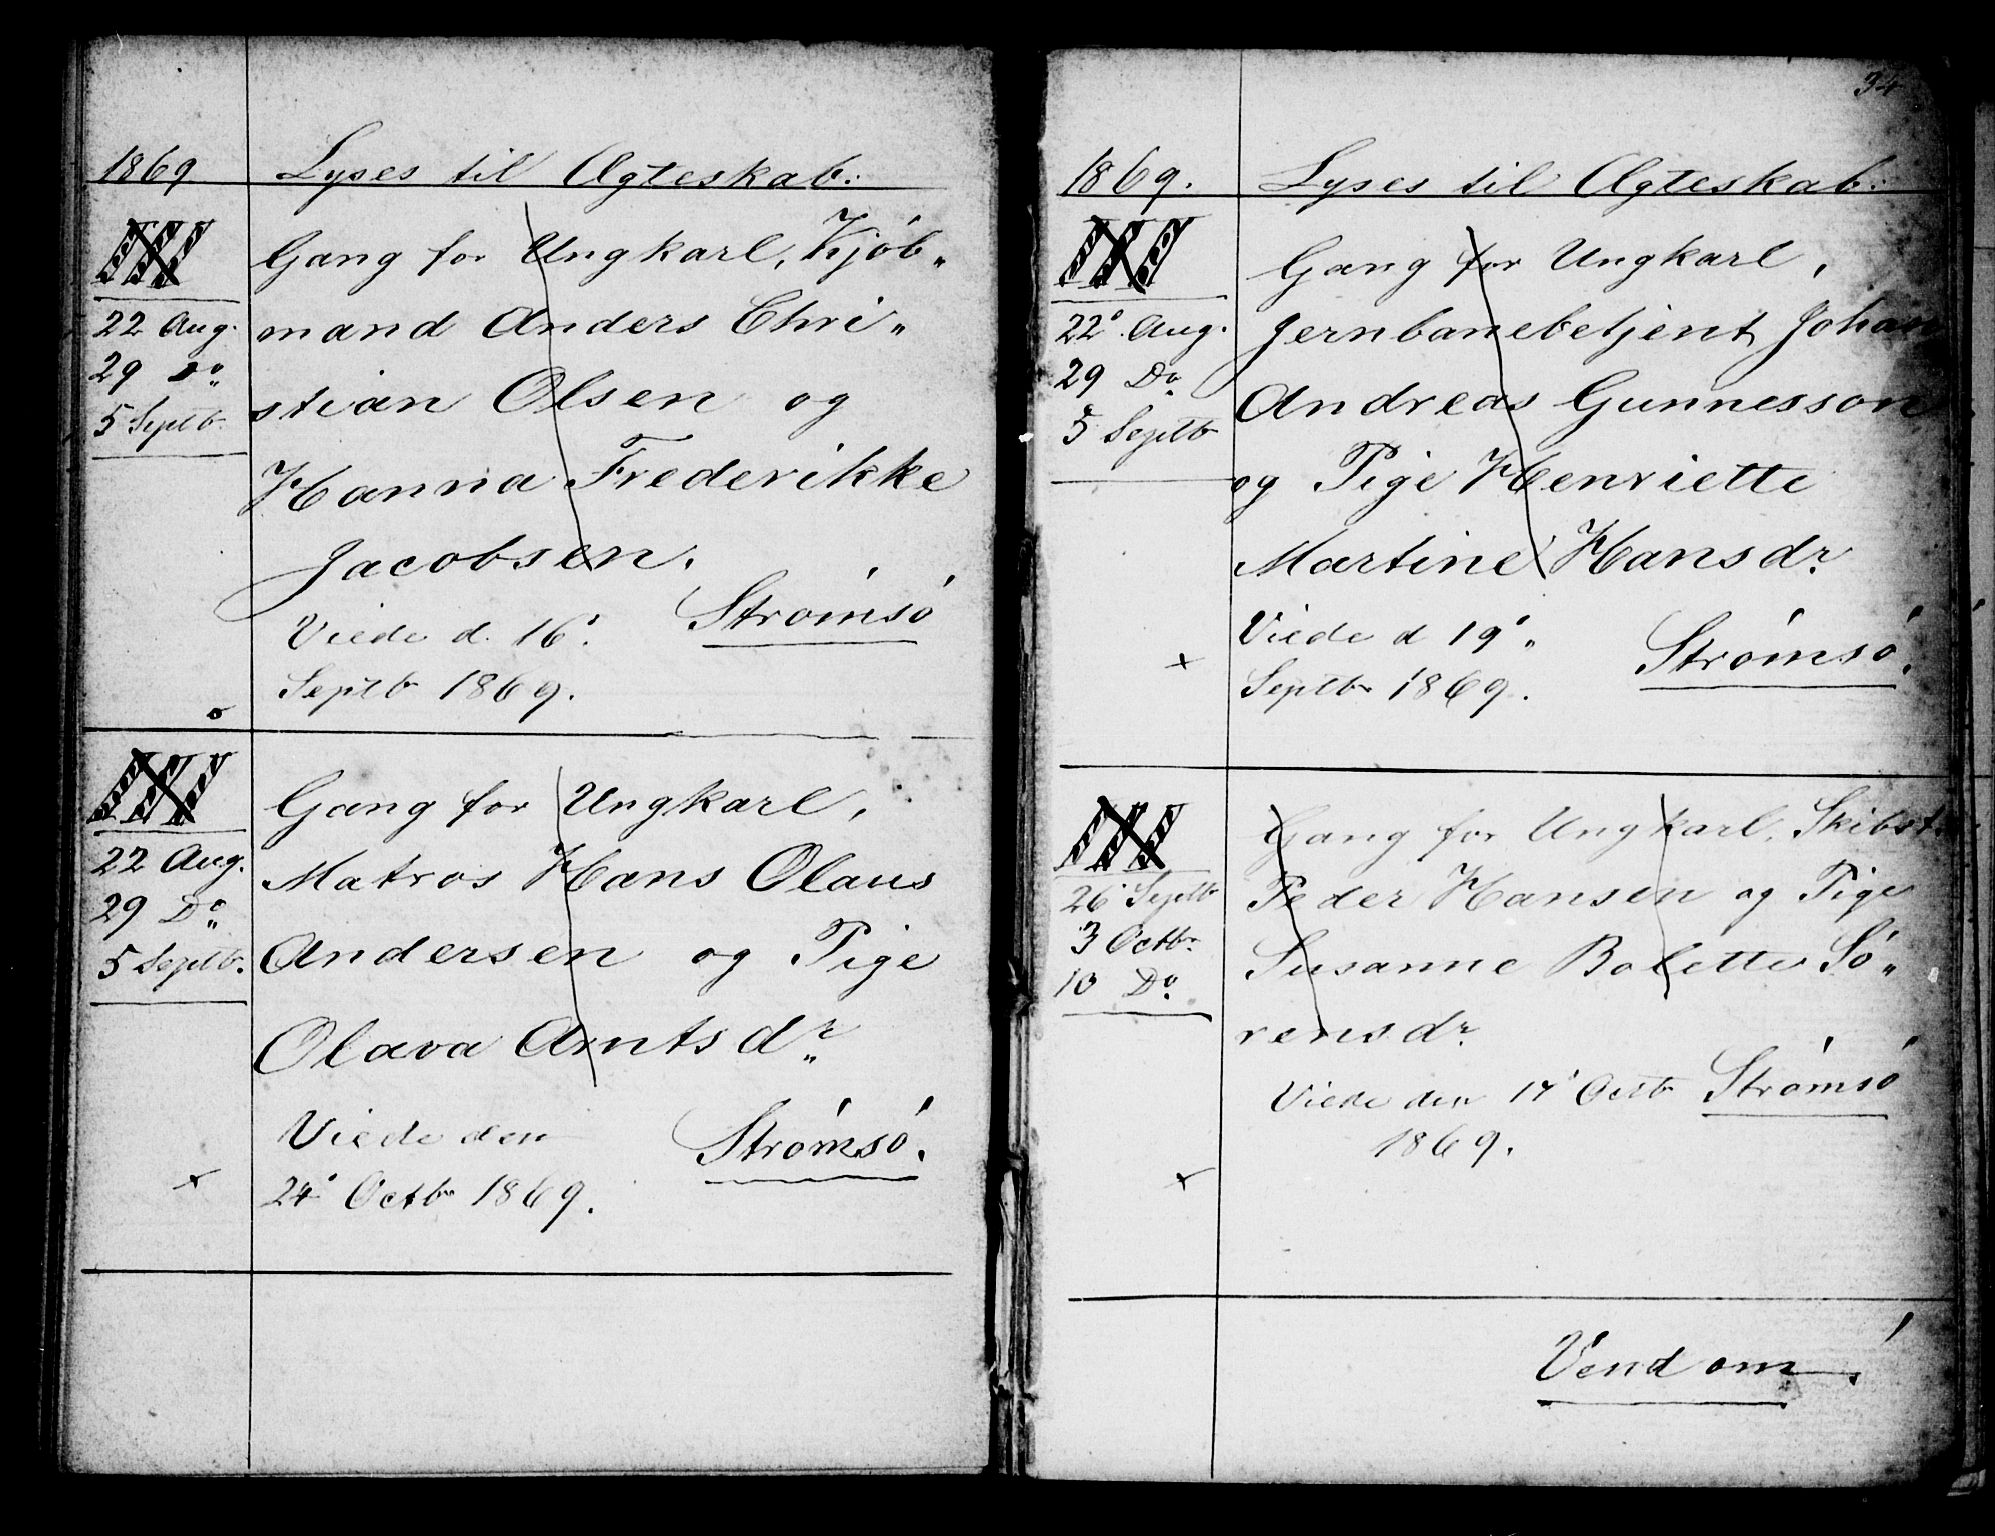 1869 Lyses til Ægteskab:
III Gang for Ungkarl, Kjöb„
22 Aug. mand Anders Chri„
29 Do stian Olsen og
5 Septb.
Hanna Frederikke
Jacobsen.
Viede d. 16' Strömsö
Septb 1869.
III Gang for Ungkarl,
22 Aug. Matros Hans Olaus
29 Do
5 Septb. Andersen og Pige
Olava Arntsdr.
Viede den Strömsö.
24' Octbr 1869.
34
1869. Lyses til Ægteskab:
III Gang for Ungkarl,
22' Aug. Jernbanebetjent Johan
29 Do Andreas Gunnesson
5 Septb
og Pige Henriette
Martine Hansdr.
Viede d 19' Strömsö.
Septbr 1869.
III Gang for Ungkarl, Skibst.
26' Septb Peder Hansen og Pige
3 Octbr. Susanne Bolette Sö„
10 Do
rensdr.
Viede den 17' Octb Strömsö
1869.
Vend om!